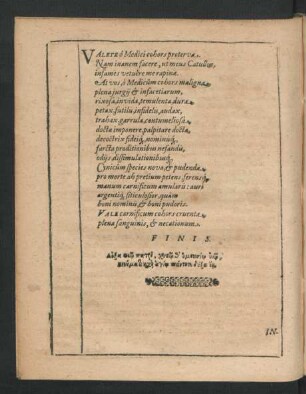 VALETE ô Medici cohors proterua.
Nam inanem facere, ut meus Catullus,
infamis uetulæ me rapina.
At uos, ô Medicûm cohors maligna
plena iurgij & infacetiarum,
rixosa, inuida, temulenta, dura,
petax, futilis, infidelis, audax,
trahax, garrula, contumeliosa,
docta imponere, palpitare docta,
decoctrix fidei,
farcta proditionibus nefandis,
odijs dissimulationibusq́;
Cynicûm species noua, & pudenda
pro morte ah pretium petens
manum carnificum æmularis: auri
argentiq́; sitientior, quàm
boni nominis, & boni pudoris.
VALE carnificum cohors cruenta
plena sanguinis, & necationum.
FINIS.
IN-